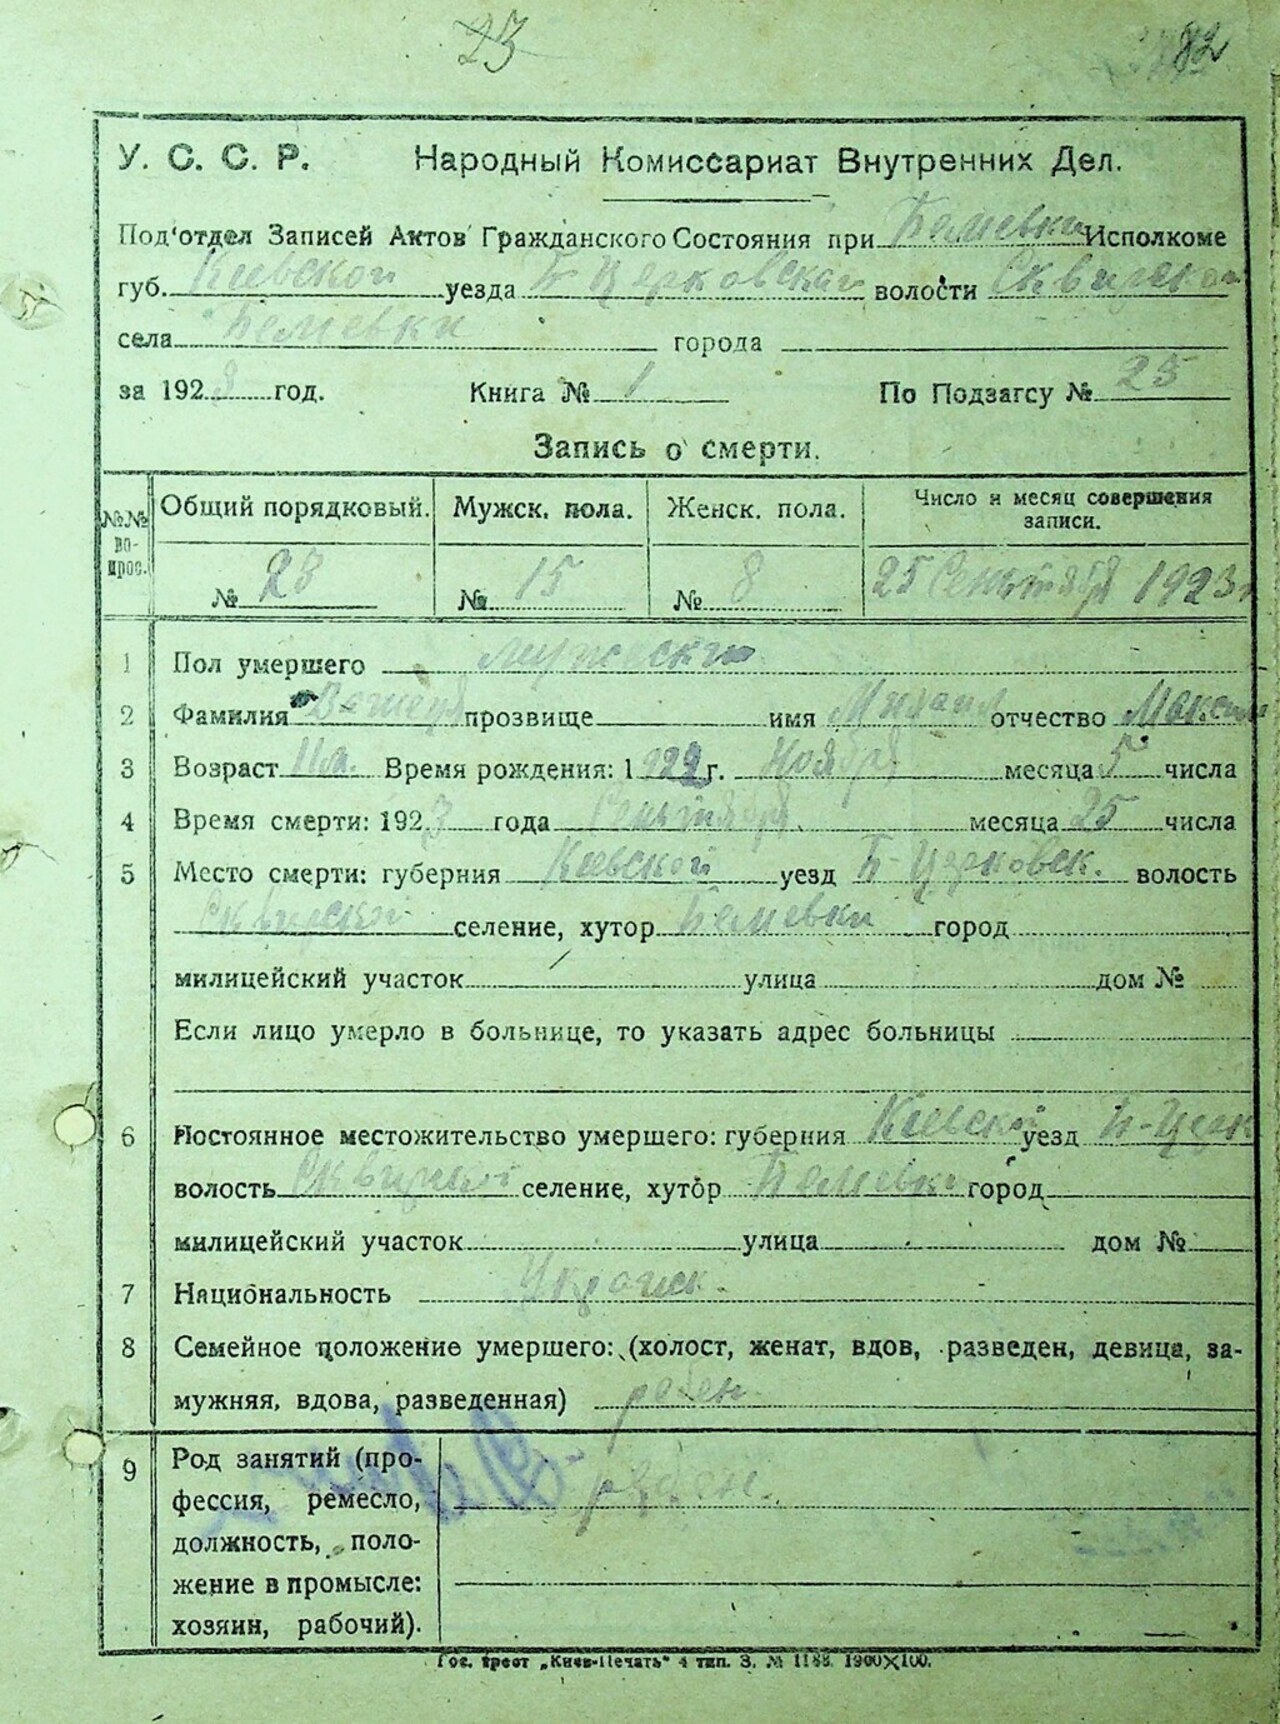 23 82
У. С. С. Р. Народный Комиссариат Внутренних Дел.
Под'отдел Записей Актов Гражданского Состояния при Исполкоме
губ. Киевской уезда Б Церковской волости Сквирской
села города
за 1923 год. Книга № 1 По Подзагсу № 25
Запись о смерти.
№№ во-прос. Общий порядковый. Мужск. пола. Женск. пола. Число и месяц совершения записи.
№ 23 № 15 № 8 25 Сентября 1923 г
1 Пол умершего мужеский
2 Фамилия прозвище имя Михаил отчество Максим
3 Возраст 11 м. Время рождения: 1922 г. Ноября месяца 5 числа
4 Время смерти: 1923 года Сентября месяца 25 числа
5 Место смерти: губерния Киевской уезд Б-Церковск. волость
Сквирской селение, хутор город
милицейский участок улица дом №
Если лицо умерло в больнице, то указать адрес больницы
6 Постоянное местожительство умершего: губерния Киевской уезд Б-Церк
волость Сквирской селение, хутор город
милицейский участок улица дом №
7 Национальность Украинск.
8 Семейное положение умершего: (холост, женат, вдов, разведен, девица, за-
мужняя, вдова, разведенная) ребен.
9 Род занятий (про- ребен.
фессия, ремесло,
должность, поло-
жение в промысле:
хозяин, рабочий).
Гос. трест „Киев-Печать" 4 тип. З. № 1188. 1900×100.